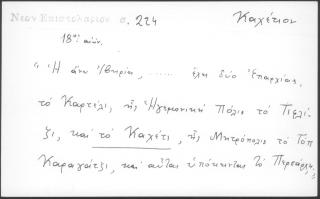 Νεον Επιστολαριον σ. 224
Καχέτιον
18ου αιών.
"Ἡ ἄνω Ἰβηρία, ...... ἔχει δύο Ἐπαρχίας,
τὸ Καρτέλι, ἧς Ἡγεμονικὴ Πόλις τὸ Τιφλί-
ζι, καὶ τὸ Καχέτι, ἧς Μητρόπολις τὸ Τὸπ
Καραγάτζι, καὶ αὗται ὑπόκεινται τῷ Περσάρχῃ"